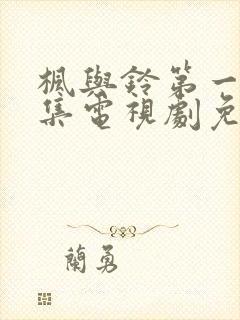 楓與鈴第一
集電視劇免
蘭勇